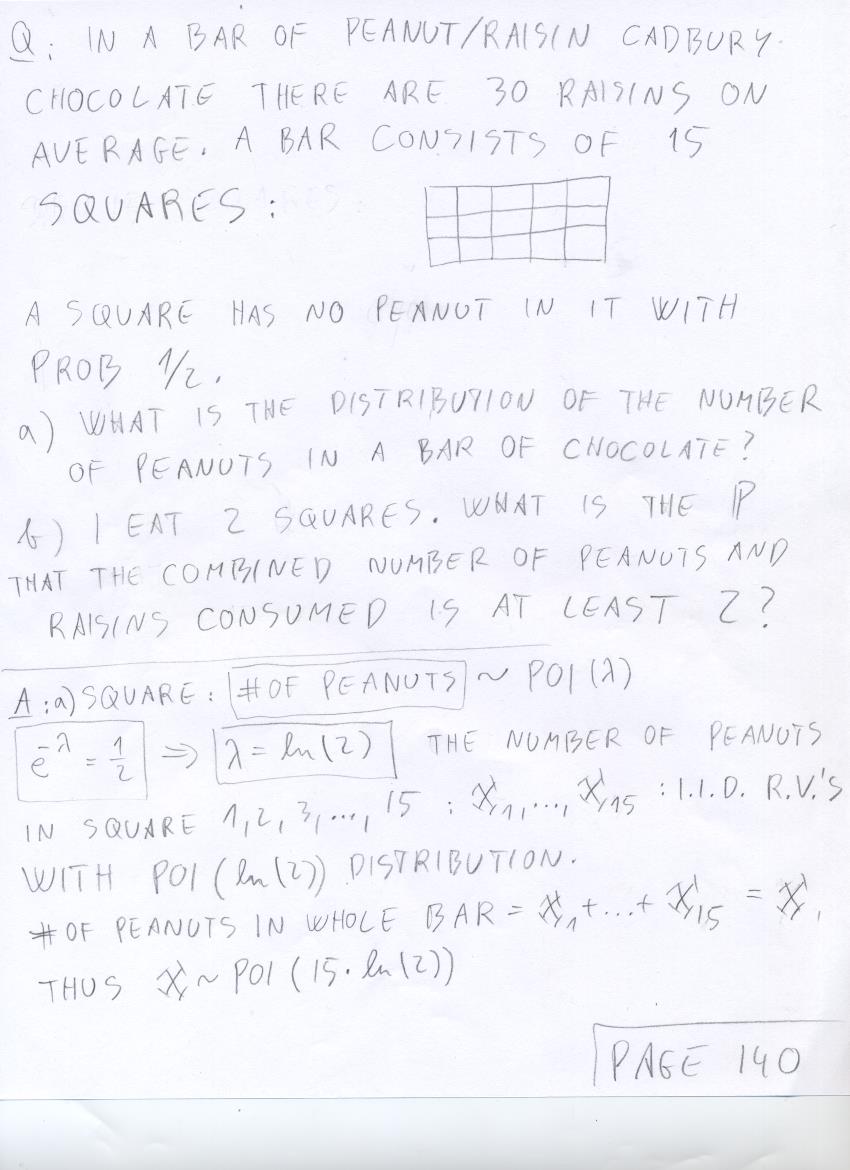 Q: IN A BAR OF PEANUT/RAISIN CADBURY
CHOCOLATE THERE ARE 30 RAISINS ON
AVERAGE. A BAR CONSISTS OF 15
SQUARES:
A SQUARE HAS NO PEANUT IN IT WITH
PROB 1/2.
a) WHAT IS THE DISTRIBUTION OF THE NUMBER
OF PEANUTS IN A BAR OF CHOCOLATE?
b) I EAT 2 SQUARES. WHAT IS THE ℙ
THAT THE COMBINED NUMBER OF PEANUTS AND
RAISINS CONSUMED IS AT LEAST 2?
A: a) SQUARE: #OF PEANUTS ~ POI(λ)
e^-λ = 1/2 ⇒ λ = ln(2) THE NUMBER OF PEANUTS
IN SQUARE 1, 2, 3, ..., 15 : X_1, ..., X_15 : I.I.D. R.V.'S
WITH POI(ln(2)) DISTRIBUTION.
# OF PEANUTS IN WHOLE BAR = X_1 + ... + X_15 = X,
THUS X ~ POI(15·ln(2))
PAGE 140